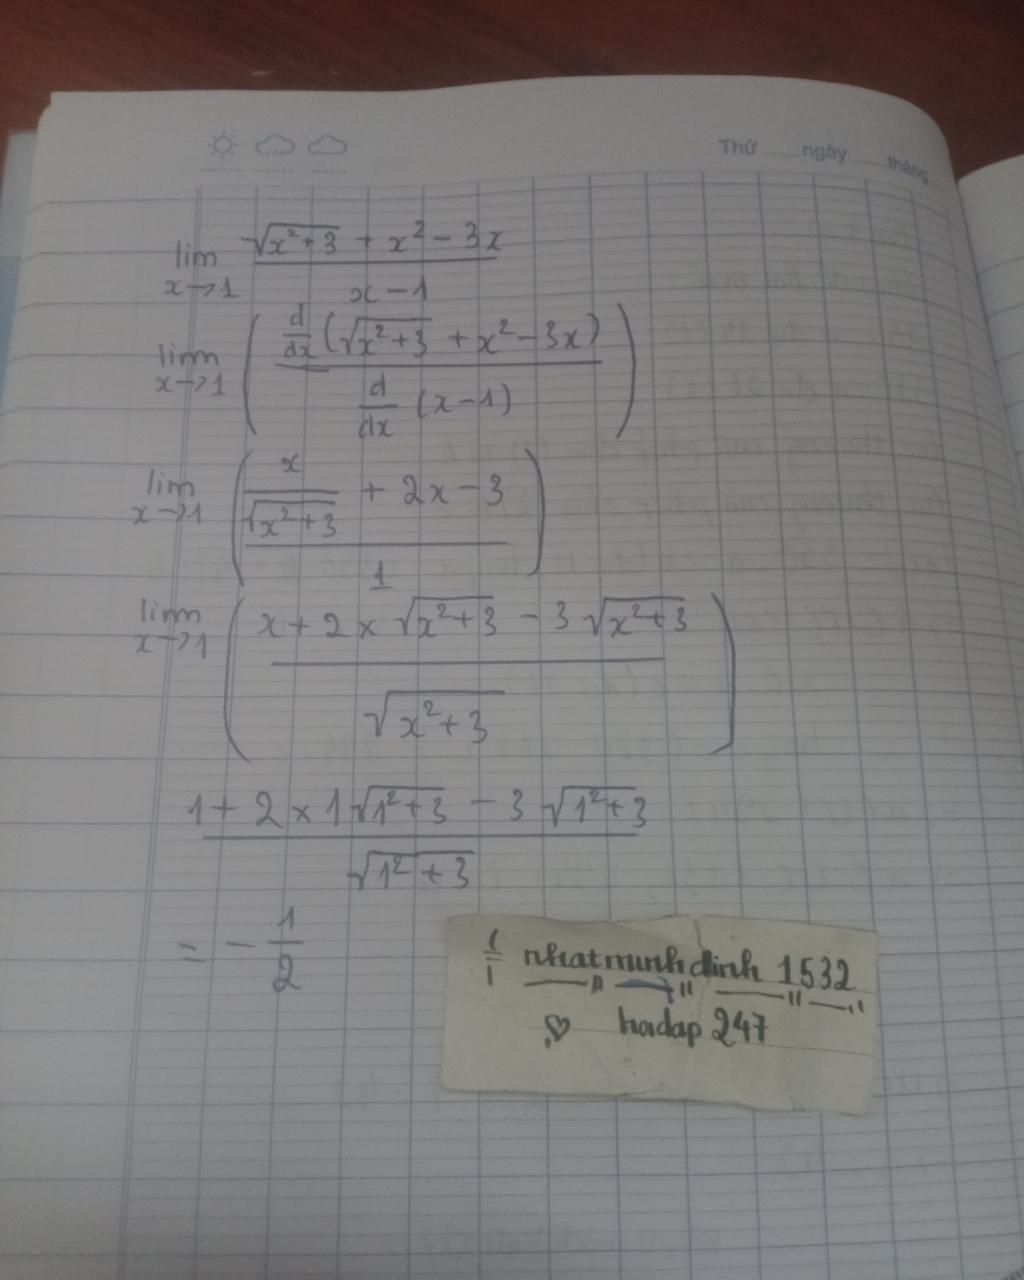 Thứ ngày tháng
lim x→1 (√(x²+3) + x² − 3x)/(x − 1)
lim x→1 ( d/dx (√(x²+3) + x² − 3x) / d/dx (x−1) )
lim x→1 ( (x/√(x²+3) + 2x − 3)/1 )
lim x→1 ( (x + 2 × √(x²+3) − 3 √(x²+3))/√(x²+3) )
(1 + 2 × 1 √(1²+3) − 3 √(1²+3))/√(1²+3)
= − 1/2
nhatminhdinh 1532
hoidap 247